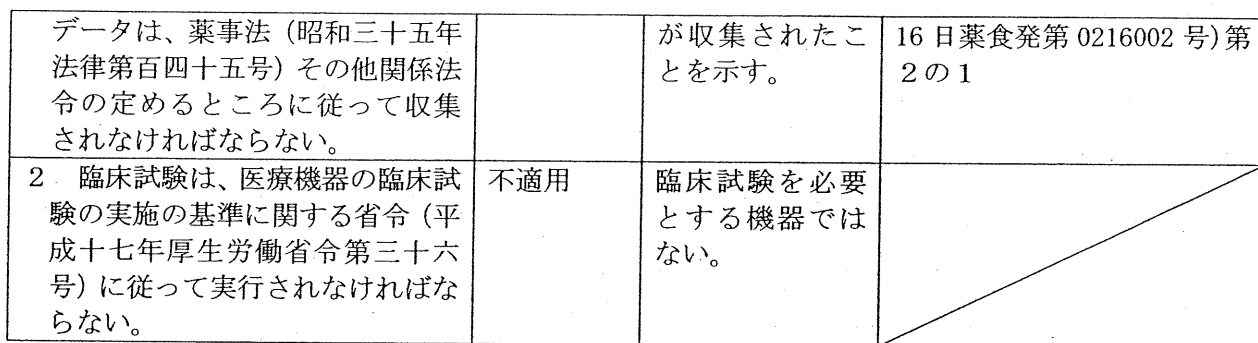 データは、薬事法（昭和三十五年
法律第百四十五号）その他関係法
令の定めるところに従って収集
されなければならない。
が収集されたこ
とを示す。
16日薬食発第0216002号)第
２の１
２　臨床試験は、医療機器の臨床試
験の実施の基準に関する省令（平
成十七年厚生労働省令第三十六
号）に従って実行されなければな
らない。
不適用
臨床試験を必要
とする機器では
ない。